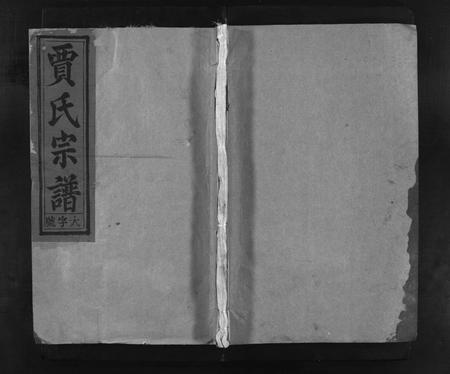 賈氏宗譜
大字號